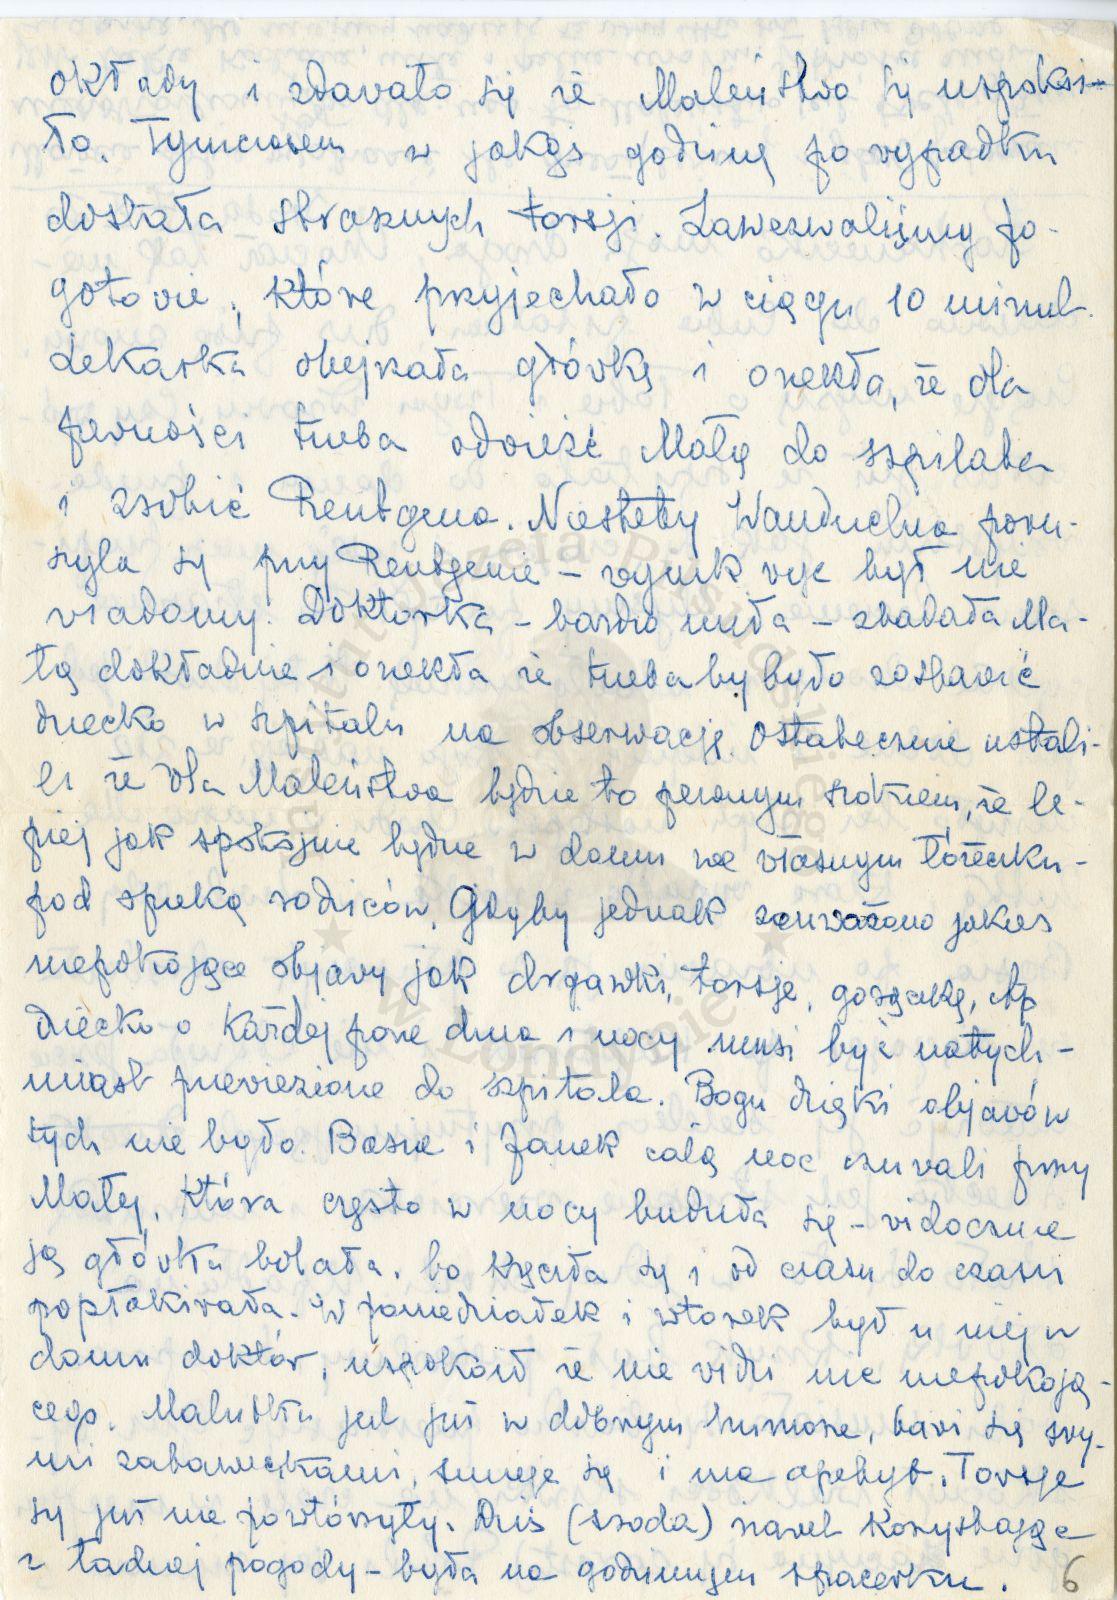 okłady i zdawało się że Maleństwo się uspokoi-
ło. Tymczasem w jakąś godzinę po wypadku
dostała strasznych torsji. Zawezwaliśmy po-
gotowie, które przyjechało w ciągu 10 minut.
Lekarka obejrzała główkę i orzekła, że dla
pewności trzeba odwieźć Małą do szpitala
i zrobić Rentgena. Niestety Wanduchna poru-
szyła się przy Rentgenie – wynik więc był nie
wiadomy. Doktorka – bardzo miła – zbadała Ma-
łą dokładnie i orzekła że trzeba by było zostawić
dziecko w szpitalu na obserwację. Ostatecznie ustali-
li że dla Maleństwa będzie to pewnym szokiem, że le-
piej jak spokojnie będzie w domu we własnym łóżeczku –
pod opieką rodziców. Gdyby jednak zauważono jakieś
niepokojące objawy jak drgawki, torsje, gorączkę, itp
dziecko o każdej porze dnia i nocy musi być natych-
miast przewiezione do szpitala. Bogu dzięki objawów
tych nie było. Basia i Janek całą noc czuwali przy
Małej, która często w nocy budziła się – widocznie
ją główka bolała, bo kręciła się i od czasu do czasu
popłakiwała. W poniedziałek i wtorek był u niej w
domu doktór, uspokoił że nie widzi nic niepokoją-
cego. Malutka jest już w dobrym humorze, bawi się swy-
mi zabaweczkami, śmieje się i ma apetyt. Torsje
się już nie powtórzyły. Dziś (środa) nawet korzystając
z ładnej pogody – była na godzinnym spacerku.
6
Instytut Józefa Piłsudskiego
w Londynie